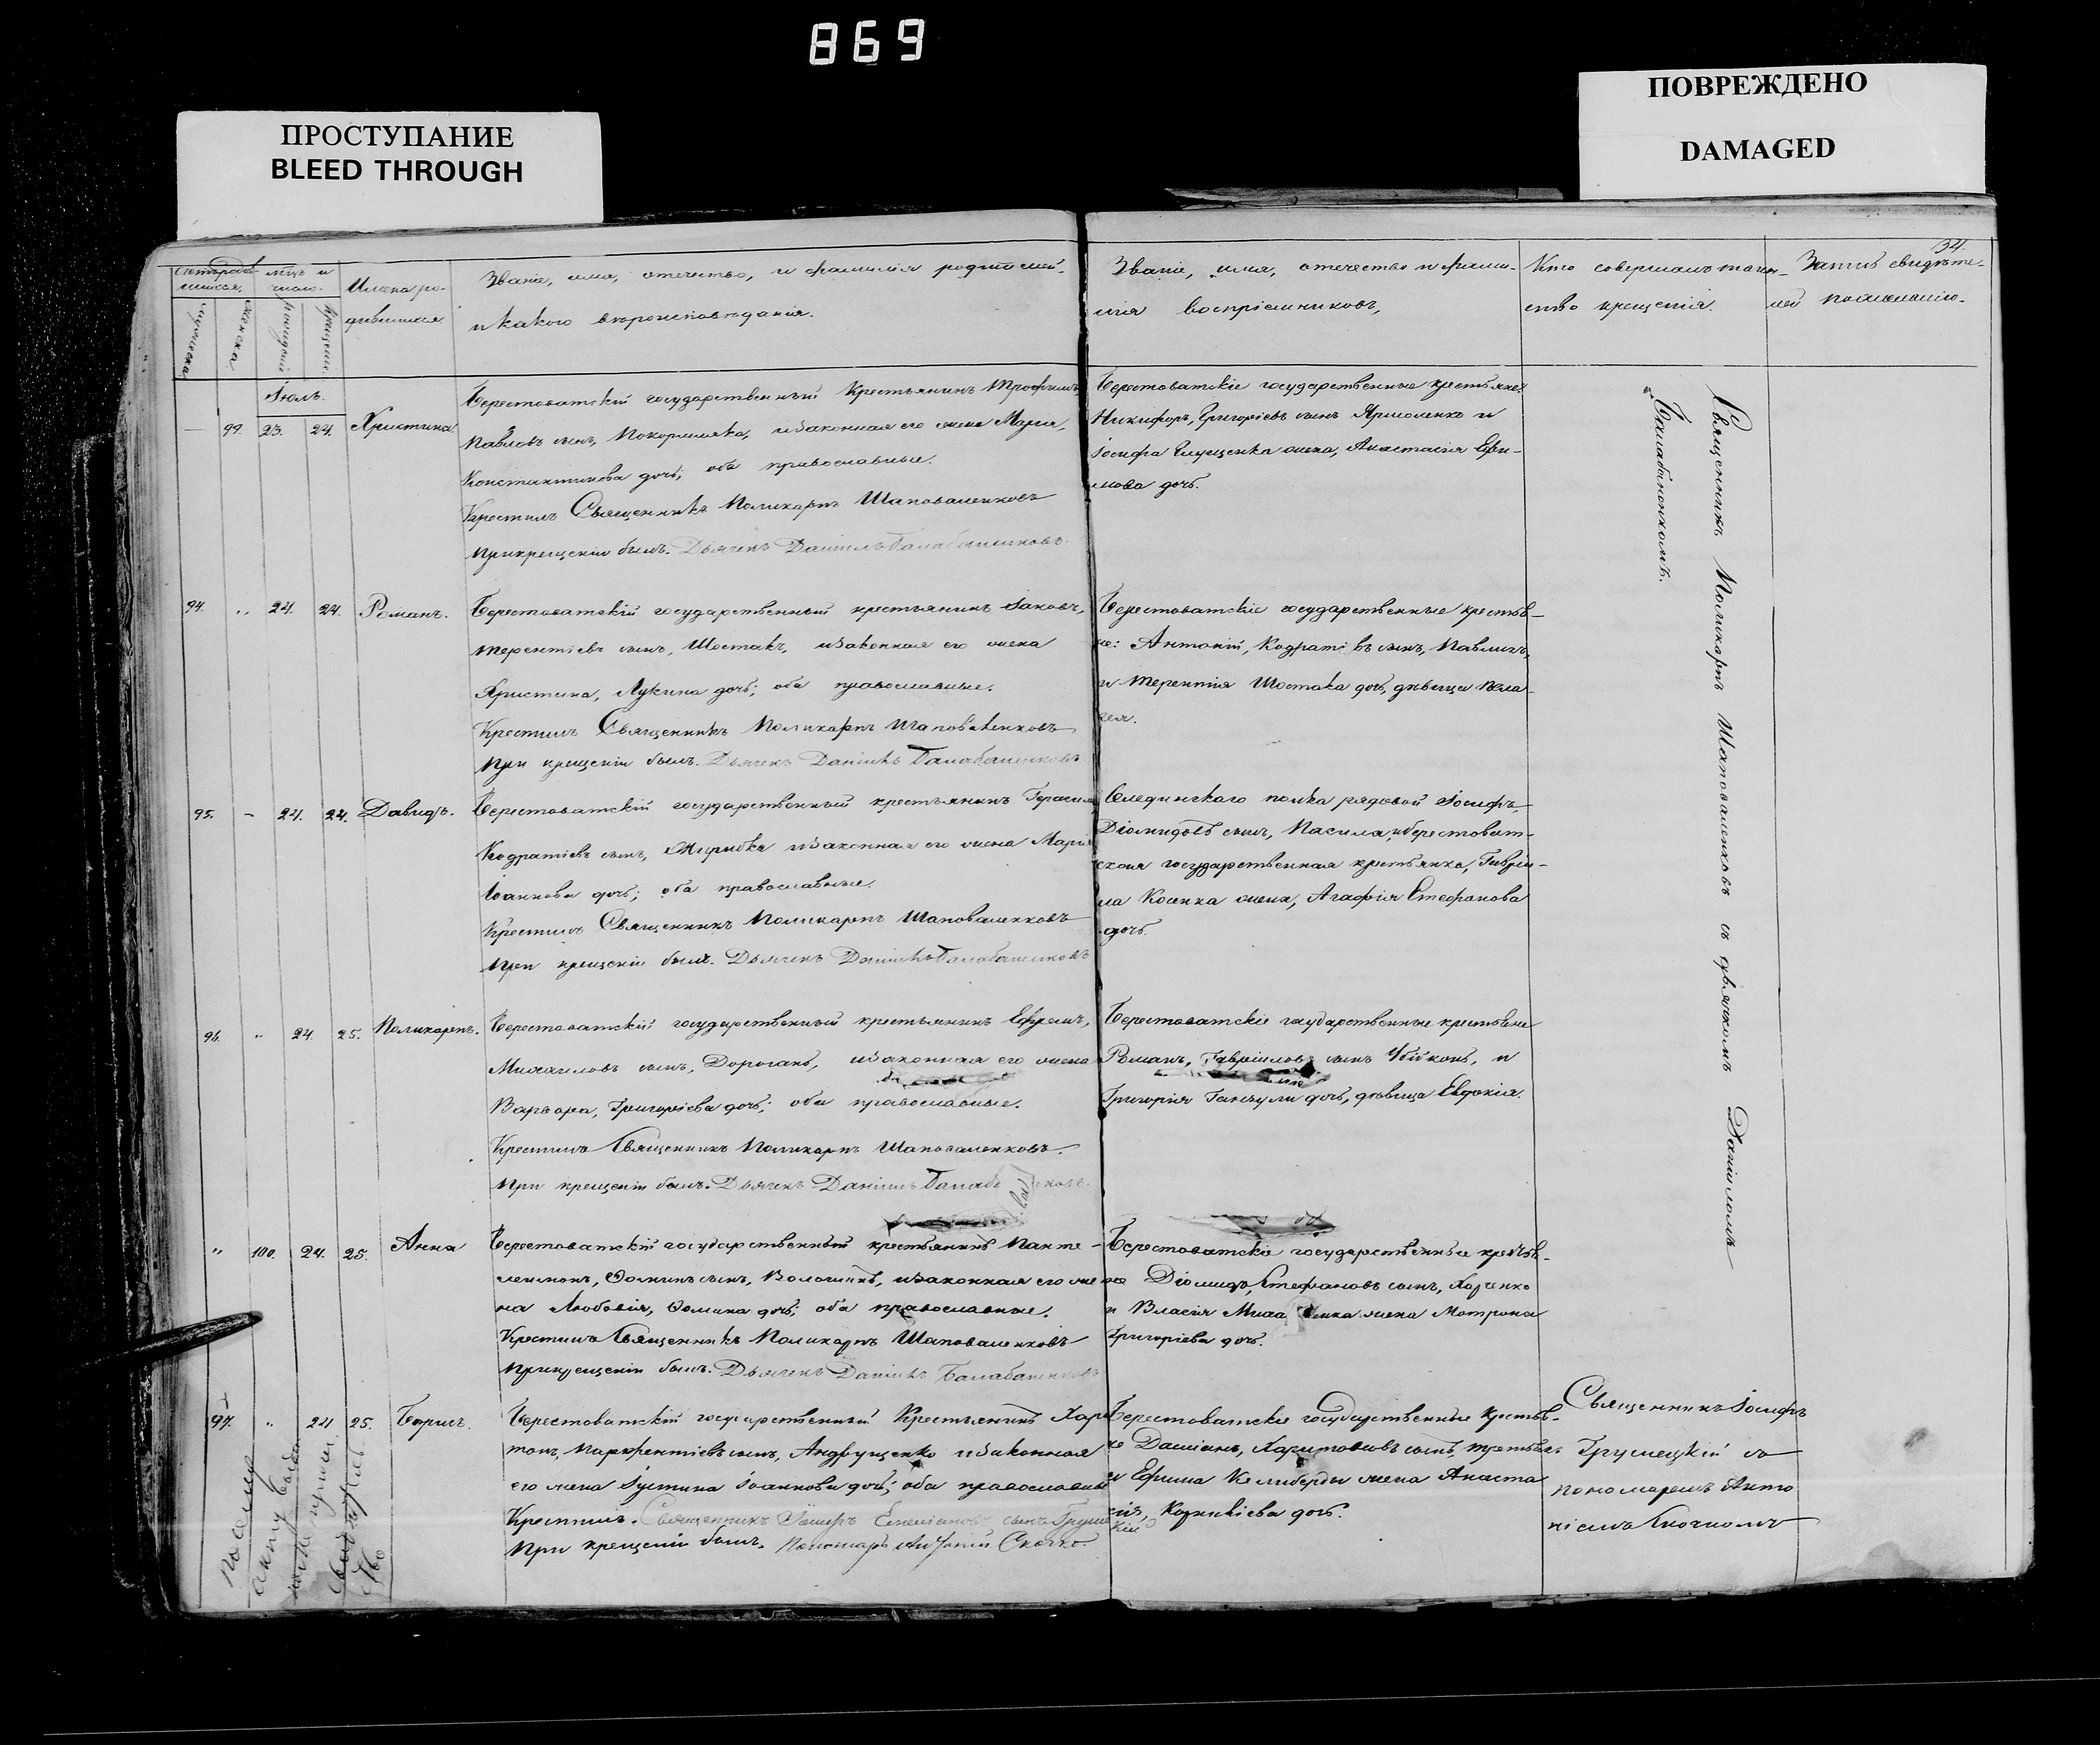 869
ПРОСТУПАНИЕ
BLEED THROUGH
ПОВРЕЖДЕНО
DAMAGED
34.
мужеска
женска
рожденія
крещенія
Имена ро-
дившихся.
Званіе, имя, отечество, и фамилія родителей,
и какого вѣроисповѣданія.
Званіе, имя, отечество и фами-
лія воспріемниковъ,
Кто совершалъ таин-
ство крещенія.
Іюль.
99. 23. 24. Христина.
Берестоватскій государственный крестьянинъ Трофимъ
Павловъ сынъ, изаконная его жена Марія,
Константинова дочь; оба православные.
Крестилъ Священникъ Поликарпъ Шаповаленковъ
При крещеніи былъ. Дьячекъ Даніилъ Балабаненковъ.
Берестоватскіе государственные крестьяне:
Никифоръ, Григоріевъ сынъ Ярмоленко и
Іосифа Глущенка жена, Анастасія Ефи-
мова дочь.
Священникъ Поликарпъ Шаповаленковъ съ дьячкомъ Даніиломъ
Балабаненкомъ.
94. „ 24. 24. Романъ.
Берестоватскій государственный крестьянинъ Іаковъ,
Терентіевъ сынъ, Шостакъ, изаконная его жена
Христина, Лукина дочь; оба православные.
Крестилъ Священникъ Поликарпъ Шаповаленковъ
При крещеніи былъ. Дьячекъ Даніилъ Балабаненковъ
Берестоватскіе государственные крестья-
не: Антоній, Кодратіевъ сынъ, Павличъ,
и Терентія Шостака дочь, дѣвица Пела-
гея.
95. - 24. 24. Давидъ.
Берестоватскій государственный крестьянинъ Герасимъ
Кодратіевъ сынъ, изаконная его жена Марія
Іоаннова дочь; оба православные.
Крестилъ Священникъ Поликарпъ Шаповаленковъ
При крещеніи былъ. Дьячекъ Даніилъ Балабаненковъ
полка рядовой Іосифъ,
Діомидовъ сынъ, иберестоват-
ская государственная крестьянка, Гаврі-
ла Косенка жена, Агафія Стефанова
дочь.
96. „ 24. 25. Поликарпъ.
Берестоватскій государственный крестьянинъ Ефремъ,
Михаиловъ сынъ, Дороганъ, изаконная его жена
Варвара, Григоріева дочь; оба православные.
Крестилъ Священникъ Поликарпъ Шаповаленковъ.
При крещеніи былъ. Дьячекъ Даніилъ
Берестоватскіе государственные крестьяне
Романъ, Гавріиловъ сынъ и
Григорія дочь, дѣвица Евдокія.
„ 100. 24. 25. Анна
Берестоватскій государственный крестьянинъ Панте-
леимонъ, Ѳоминъ сынъ, Волошинъ, изаконная его же-
на Любовія, Ѳомина дочь; оба православные.
Крестилъ Священникъ Поликарпъ Шаповаленковъ
При крещеніи былъ. Дьячекъ Даніилъ Балабаненковъ
Берестоватскіе государственные крестья-
не Діомидъ, Стефановъ сынъ, Харченко
и Власія жена Мотрона
Григоріева дочь.
97. „ 24 25. Борисъ.
Берестоватскій государственный Крестьянинъ Хари-
тонъ, Парфентіевъ сынъ, Андрущенко изаконная
его жена Іустина Іоаннова дочь; оба православные
Крестилъ. Священникъ
При крещеніи былъ. Пономарь Антоній
Берестоватскіе государственные крестья-
не Даміанъ, Харитоновъ сынъ,
и Ефима Келиберды жена Анаста-
сія, дочь.
Священникъ Іосифъ
съ
пономаремъ Анто-
ніемъ